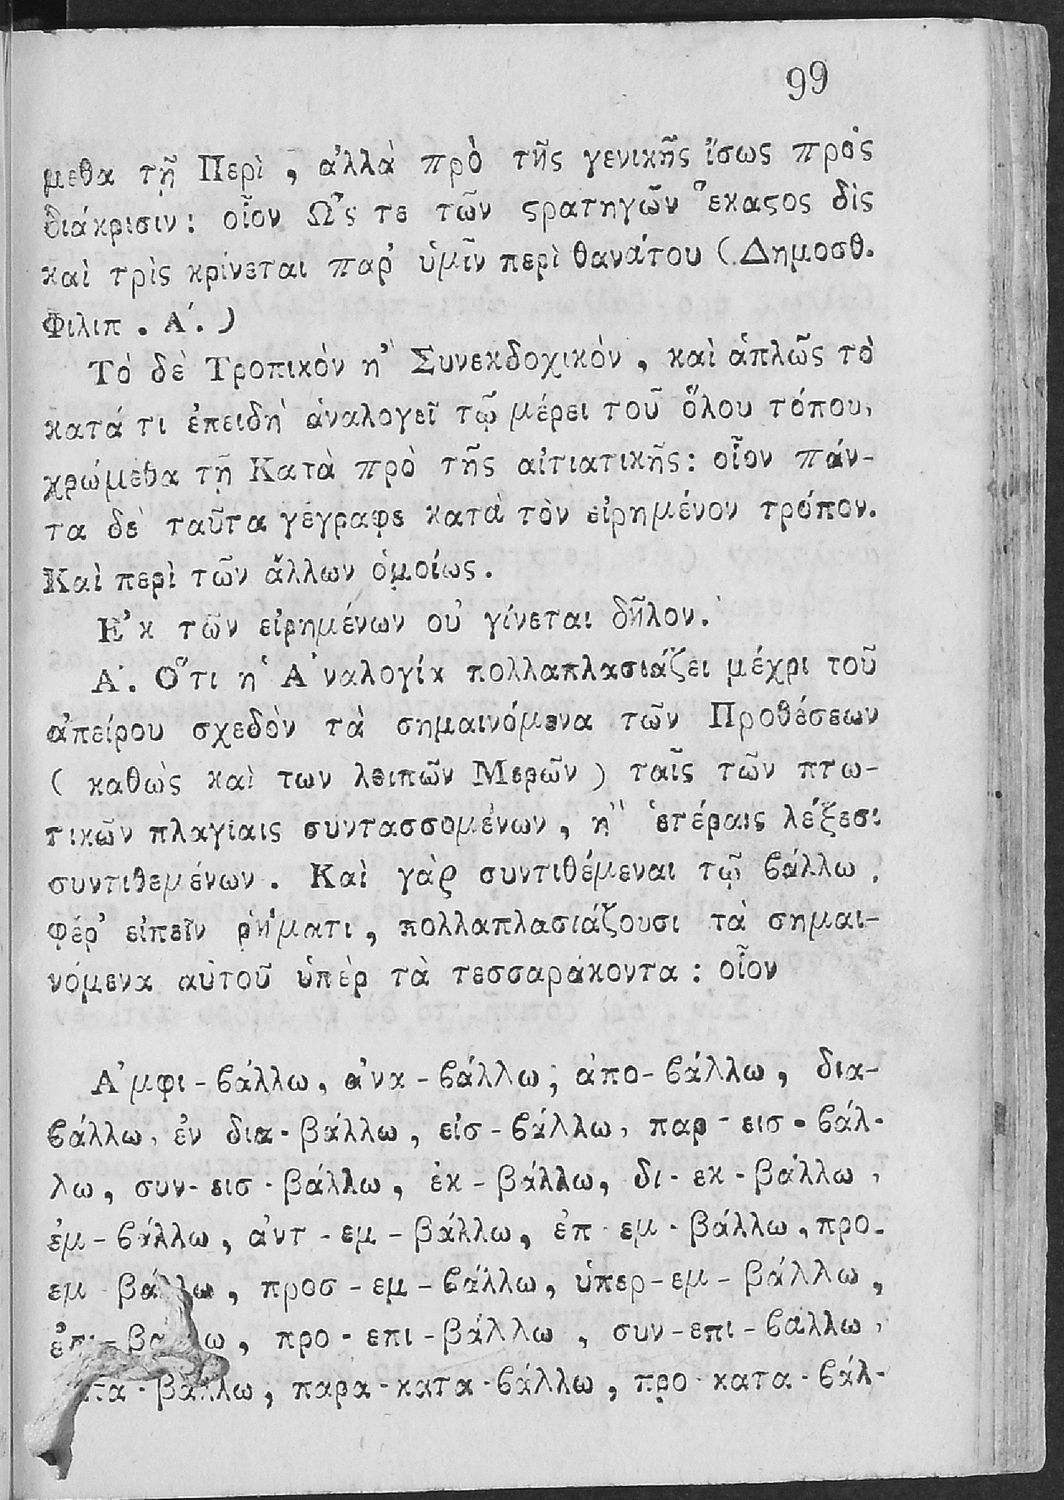 99
μεθα τῇ Περὶ, ἀλλὰ πρὸ τῆς γενικῆς ἴσως πρὸς
διάκρισιν: οἷον Ὥς τε τῶν ϛρατηγῶν ἕκαϛος δὶς
καὶ τρὶς κρίνεται παρ' ὑμῖν περὶ θανάτου (Δημοσθ.
Φιλιπ. Α'.)
Τὸ δὲ Τροπικὸν ἢ Συνεκδοχικὸν, καὶ ἁπλῶς τὸ
κατά τι ἐπειδὴ ἀναλογεῖ τῷ μέρει τοῦ ὅλου τόπου,
χρώμεθα τῇ Κατὰ πρὸ τῆς αἰτιατικῆς: οἷον πάν-
τα δὲ ταῦτα γέγραφε κατὰ τὸν εἰρημένον τρόπον.
Καὶ περὶ τῶν ἄλλων ὁμοίως.
Ἐκ τῶν εἰρημένων οὐ γίνεται δῆλον.
Α'. Ὅτι ἡ Ἀναλογία πολλαπλασιάζει μέχρι τοῦ
ἀπείρου σχεδὸν τὰ σημαινόμενα τῶν Προθέσεων
(καθὼς καὶ των λοιπῶν Μερῶν) ταῖς τῶν πτω-
τικῶν πλαγίαις συντασσομένων, ἢ ἑτέραις λέξεσι
συντιθεμένων. Καὶ γὰρ συντιθέμεναι τῷ βάλλω,
φέρ' εἰπεῖν ῥήματι, πολλαπλασιάζουσι τὰ σημαι-
νόμενα αὐτοῦ ὑπὲρ τὰ τεσσαράκοντα: οἷον
Ἀμφι-βάλλω, ἀνα-βάλλω, ἀπο-βάλλω, δια-
βάλλω, ἐν δια-βάλλω, εἰσ-βάλλω, παρ-εισ-βάλ-
λω, συν-εισ-βάλλω, ἐκ-βάλλω, δι-εκ-βάλλω,
ἐμ-βάλλω, ἀντ-εμ-βάλλω, ἐπ-εμ-βάλλω, προ-
εμ βάλλω, προσ-εμ-βάλλω, ὑπερ-εμ-βάλλω,
ἐπι-βαλλω, προ-επι-βάλλω, συν-επι-βάλλω,
τα-βάλλω, παρα-κατα-βάλλω, προ-κατα-βάλ-